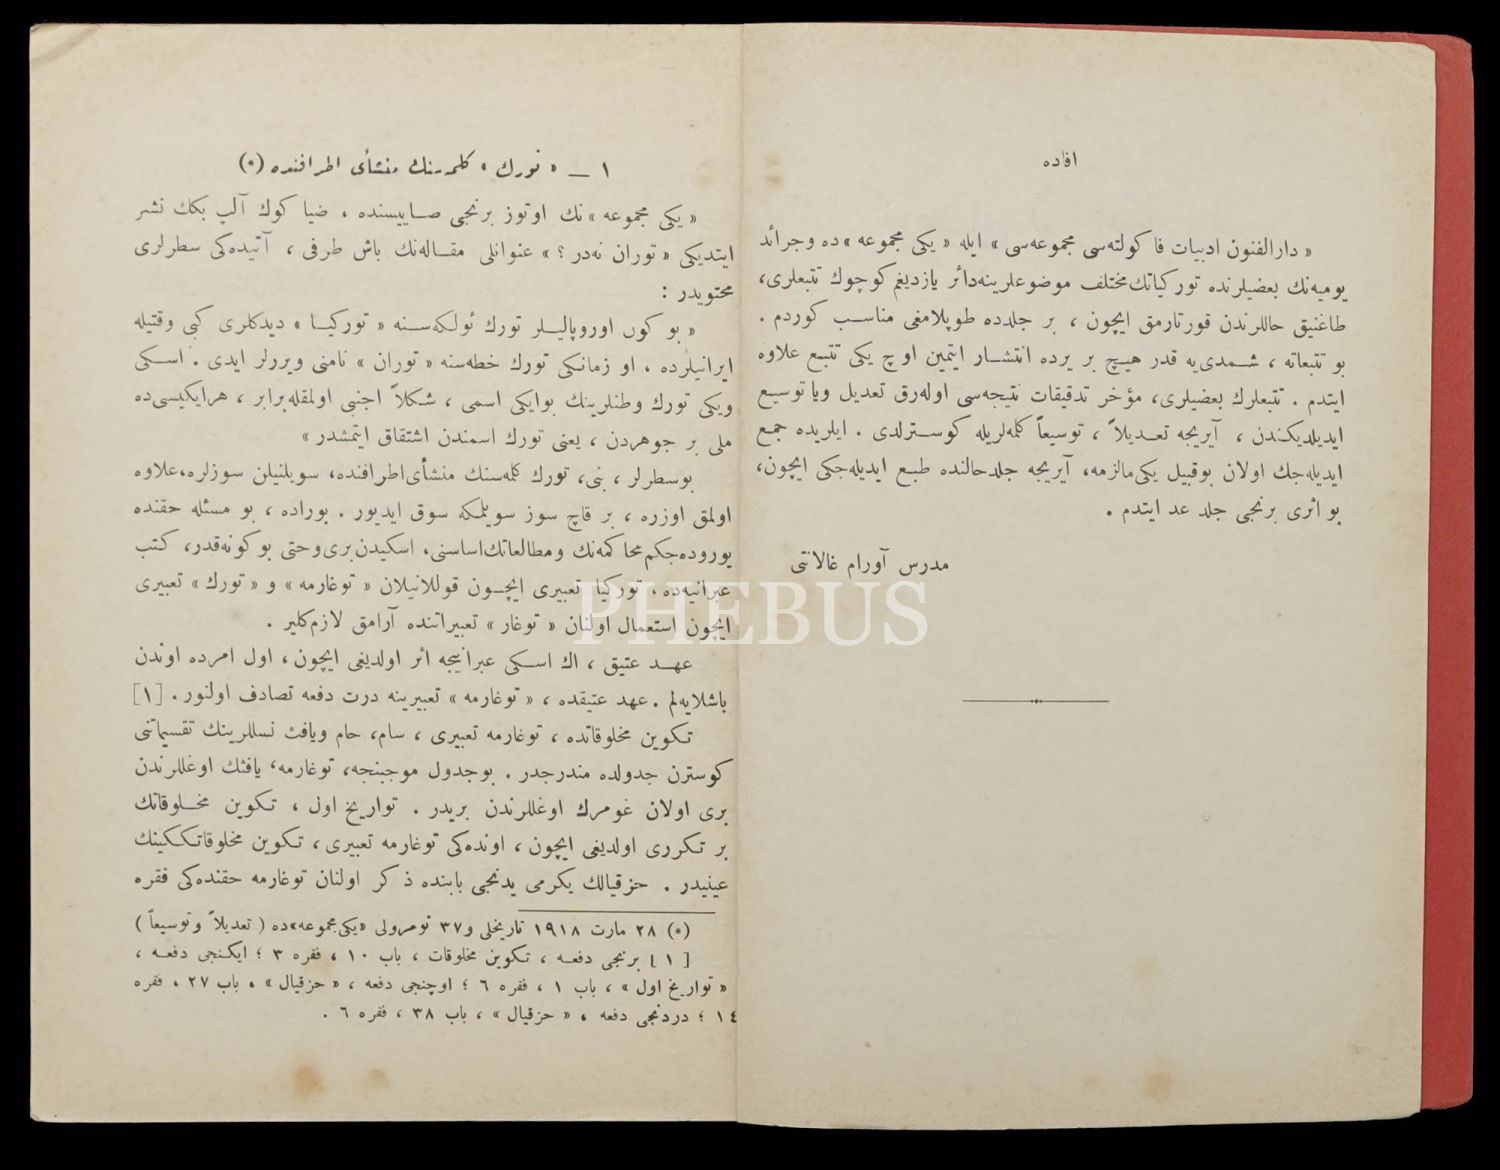 افاده
« دارالفنون ادبيات فاكولته‌سی مجموعه‌سی » ايله « يكی مجموعه » ده وجرائد
يوميه‌نك بعضيلرنده توركياتك مختلف موضوعلرينه‌دائر يازديغم كوچوك تتبعلری،
طاغنيق حاللرندن قورتارمق ايچون ، بر جلدده طوپلامغی مناسب كوردم .
بو تتبعاته ، شمدی‌يه قدر هيچ بر يرده انتشار ايتمين اوچ يكی تتبع علاوه
ايتدم . تتبعلرك بعضيلری، مؤخر تدقيقات نتيجه‌سی اوله‌رق تعديل ويا توسيع
ايديلديكندن ، آيريجه تعديلاً ، توسيعاً كلمه‌لريله كوسترلدی . ايلريده جمع
ايديله‌جك اولان بوقبيل يكی‌مالزمه، آيريجه جلدحالنده طبع ايديله‌جكی ايچون،
بو اثری برنجی جلد عد ايتدم .
مدرس آورام غالانتی
١ ــ « تورك » كلمه‌سنك منشأی اطرافنده (*)
« يكی مجموعه » نك اوتوز برنجی صاييسنده ، ضيا كوك آلپ بكك نشر
ايتديكی « توران نه‌در ؟ » عنوانلی مقاله‌نك باش طرفی ، آتيده‌كی سطرلری
محتويدر :
« بو كون اوروپاليلر تورك ئولكه‌سنه « توركيا » ديدكلری كبی وقتيله
ايرانيلرده ، او زمانكی تورك خطه‌سنه « توران » نامنی ويررلر ايدی . اسكی
ويكی تورك وطنلرينك بوايكی اسمی ، شكلاً اجنبی اولمقله‌برابر ، هرايكيسی‌ده
ملی بر جوهردن ، يعنی تورك اسمندن اشتقاق ايتمشدر »
بوسطرلر ، بنی، تورك كلمه‌سنك منشأی اطرافنده، سويلنيلن سوزلره،علاوه
اولمق اوزره ، بر قاچ سوز سويلمكه سوق ايديور . بوراده ، بو مسئله حقنده
يوروده‌جكم محاكمه‌نك ومطالعاتك‌اساسنی، اسكيدن بری‌وحتی بو كونه‌قدر، كتب
عبرانيه‌ده ، توركيا تعبيری ايچون قوللانيلان « توغارمه » و « تورك » تعبيری
ايچون استعمال اولنان « توغار » تعبيراتنده آرامق لازم‌كلير .
عهد عتيق ، اك اسكی عبرانيجه اثر اولديغی ايچون ، اول امرده اوندن
باشلايه‌لم . عهد عتيقده ، « توغارمه » تعبيرينه درت دفعه تصادف اولنور . [١]
تكوين مخلوقاتده ، توغارمه تعبيری ، سام، حام ويافث نسللرينك تقسيماتنی
كوسترن جدولده مندرجدر . بوجدول موجبنجه، توغارمه، يافثك اوغللرندن
بری اولان غومرك اوغللرندن بريدر . تواريخ اول ، تكوين مخلوقاتك
بر تكرری اولديغی ايچون ، اونده‌كی توغارمه تعبيری ، تكوين مخلوقاتككينك
عينيدر . حزقيالك يكرمی يدنجی بابنده ذكر اولنان توغارمه حقنده‌كی فقره
(*) ٢٨ مارت ١٩١٨ تاريخلی و٣٧ نومرولی «يكی مجموعه»ده ( تعديلاً وتوسيعاً )
[ ١ ] برنجی دفعه ، تكوين مخلوقات ، باب ١٠ ، فقره ٣ ؛ ايكنجی دفعه ،
« تواريخ اول » ، باب ١ ، فقره ٦ ؛ اوچنجی دفعه ، « حزقيال » ، باب ٢٧ ، فقره
١٤ ؛ دردنجی دفعه ، « حزقيال » ، باب ٣٨ ، فقره ٦ .
PHEBUS